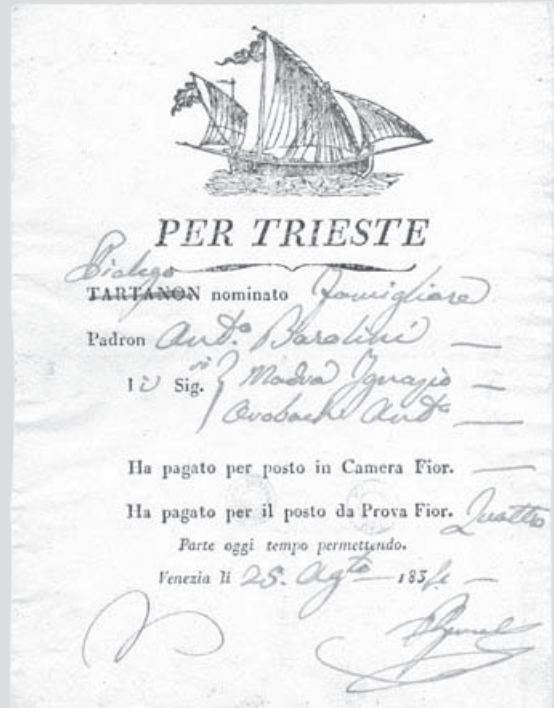 PER TRIESTE
Pielego
TARTANON nominato Famigliare
Padron Ant.º Barolini
Ii Sig.ri Madva Ignazio
Ant.º
Ha pagato per posto in Camera Fior.
Ha pagato per il posto da Prova Fior. Quattro
Parte oggi tempo permettendo.
Venezia li 25. Agto 183